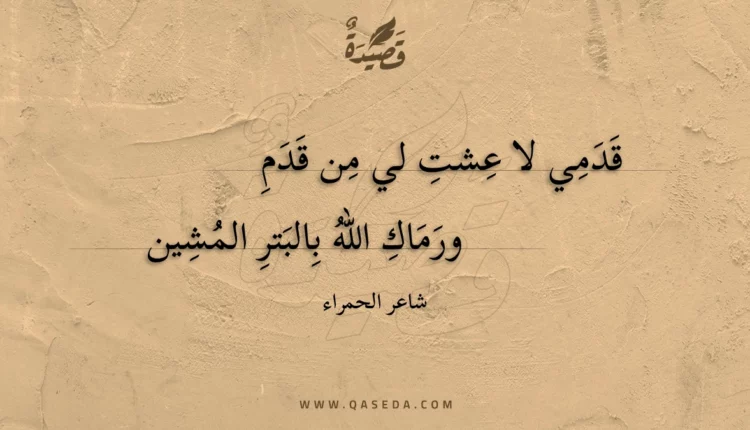 قَصِيْدَةٌ
قَدَمِي لا عِشتِ لي مِن قَدَمِ
ورَمَاكِ اللهُ بِالبَترِ المُشِين
شاعر الحمراء
WWW.QASEDA.COM